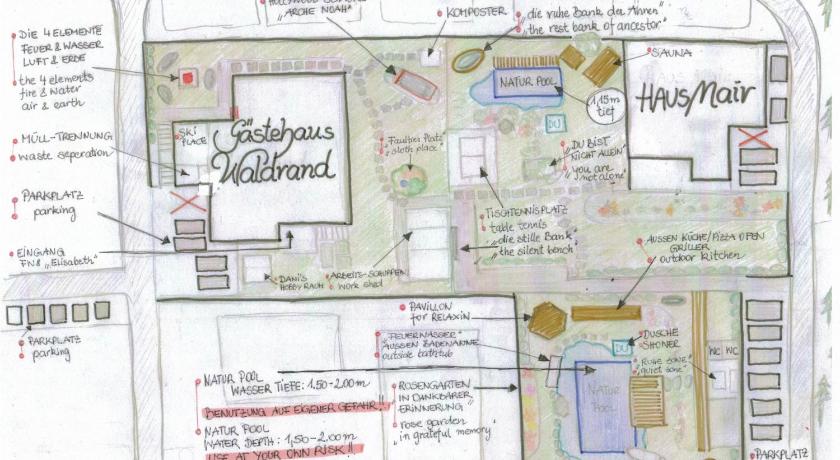 "ARCHE NOAH"
KOMPOSTER
"die ruhe Bank der Ahnen"
"the rest bank of ancestor"
DIE 4 ELEMENTE
FEUER & WASSER
LUFT & ERDE
the 4 elements
fire & water
air & earth
SAUNA
NATUR POOL
1,15m
tief
HAUS Mair
MÜLL-TRENNUNG
waste seperation
SKI
PLACE
Gästehaus
Waldrand
"Faultier Platz"
"sloth place"
DU
"DU BIST
NICHT ALLEIN"
"you are
not alone"
PARKPLATZ
parking
TISCHTENNISPLATZ
table tennis
"die stille Bank"
"the silent bench"
EINGANG
FN8 "Elisabeth"
DANIS
HOBBYRAUM
ARBEITS-SCHUPPEN
work shed
AUSSEN KÜCHE/PIZZA OFEN
GRILLER
outdoor kitchen
PARKPLATZ
parking
PAVILLON
for RELAXIN
"FEUERWASSER"
AUSSEN BADEWANNE
outside bathtub
DUSCHE
SHOWER
DU
"RUHE ZONE"
"quiet zone"
WC WC
NATUR POOL
WASSER TIEFE: 1,50-2.00 m
BENUTZUNG AUF EIGENER GEFAHR!!
NATUR POOL
WATER DEPTH: 1,50-2.00 m
USE AT YOUR OWN RISK!!
ROSENGARTEN
IN DANKBARER
ERINNERUNG"
rose garden
"in grateful memory"
NATUR
POOL
PARKPLATZ